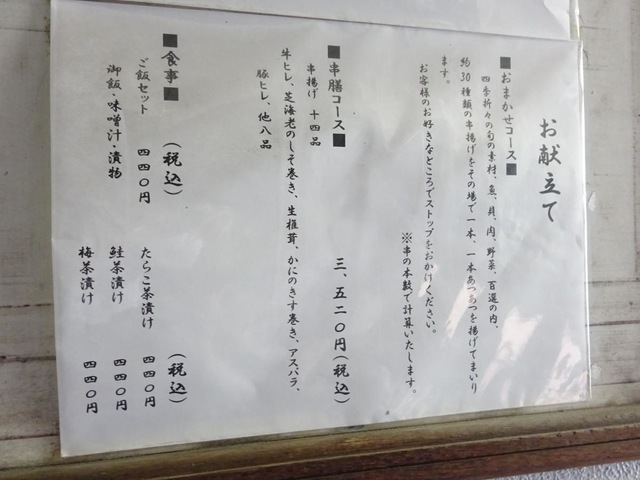 お献立て
■おまかせコース■
四季折々の旬の素材、魚、貝、肉、野菜、百選の内、
約30種類の串揚げをその場で一本、一本あつあつを揚げてまいり
ます。
お客様のお好きなところでストップをおかけください。
※串の本数で計算いたします。
■串膳コース■ 三、五二〇円(税込)
串揚げ 十四品
牛ヒレ、芝海老のしそ巻き、生椎茸、かにのきす巻き、アスパラ、
豚ヒレ、他八品
■食事■ (税込) (税込)
ご飯セット 四四〇円 たらこ茶漬け 四四〇円
御飯・味噌汁・漬物 鮭茶漬け 四四〇円
梅茶漬け 四四〇円